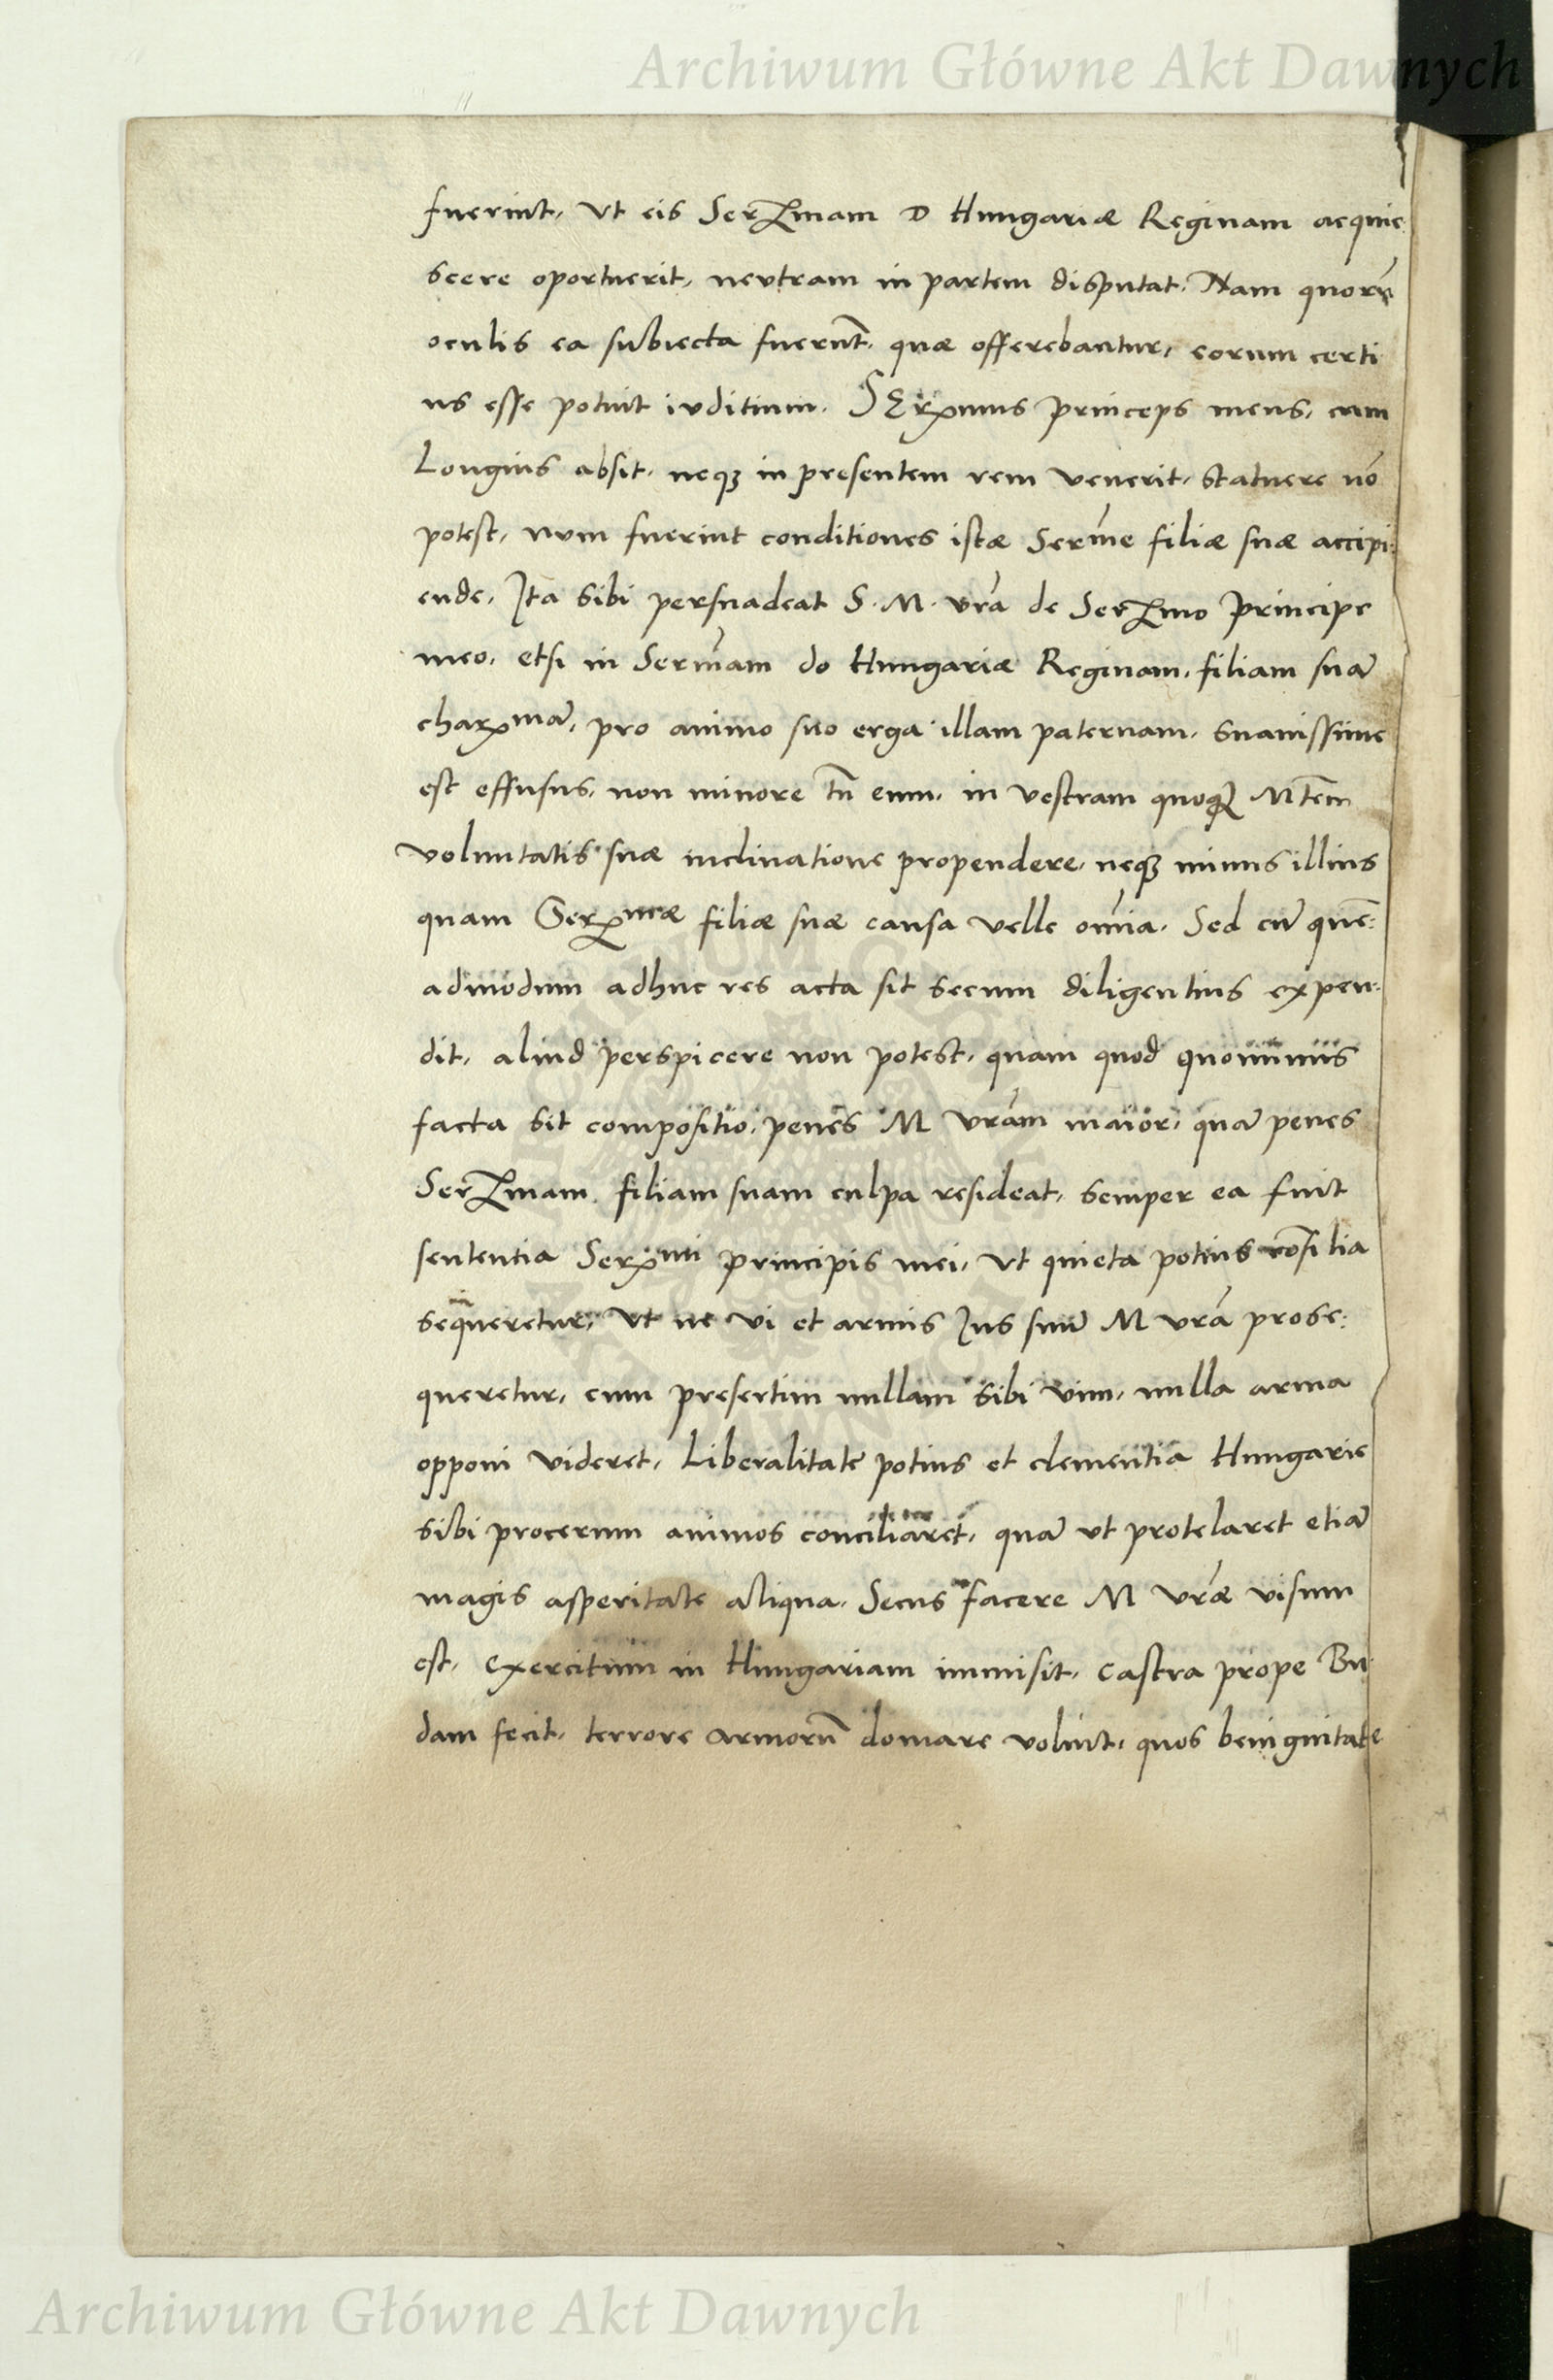 Archiwum Główne Akt Dawnych
fuerint, Vt eis Serxmam D Hungariæ Reginam acquie
scere oportuerit, neutram in partem disputat. Nam quorũ
oculis ea subiecta fuerũt, quæ offerebantur, eorum certi
us esse potuit iuditium. SErxmus princeps meus, cum
Longius absit, neqȝ in presentem rem venerit, statuere nõ
potest, num fuerint conditiones istæ Serm̃e filiæ suæ accipi:
ende, Ita sibi persuadeat S. M. vr̃a de Serxmo principe
meo, etsi in Serm̃am do Hungariæ Reginam, filiam suã
charxmã, pro animo suo erga illam paternam, suauissime
est effusus, non minore tñ eum, in vestram quoqȝ Mtem̃
voluntatis suæ inclinatione propendere, neqȝ minus illius
quam Serxmæ filiæ suæ causa velle om̃ia. Sed cũ quẽ:
admodum adhuc res acta sit secum diligentius expen:
dit, aliud perspicere non potest, quam quod quominus
facta sit compositio, penes M vr̃am maior, quã penes
Serxmam filiam suam culpa resideat, semper ea fuit
sententia Serxmi principis mei, vt quieta potius cõsilia
sequeretur, Vt ne vi et armis Ius suũ M vr̃a prose:
queretur, cum presertim nullam sibi vim, nulla arma
opponi videret, Liberalitate potius et clementia Hungarie
sibi procerum animos conciliaret, quã vt protelaret etiã
magis asperitate aliqua. Secus facere M vr̃æ visum
est, exercitum in Hungariam immisit, castra prope Bu
dam fecit, terrore armorũ domare voluit, quos benignitate
Archiwum Główne Akt Dawnych